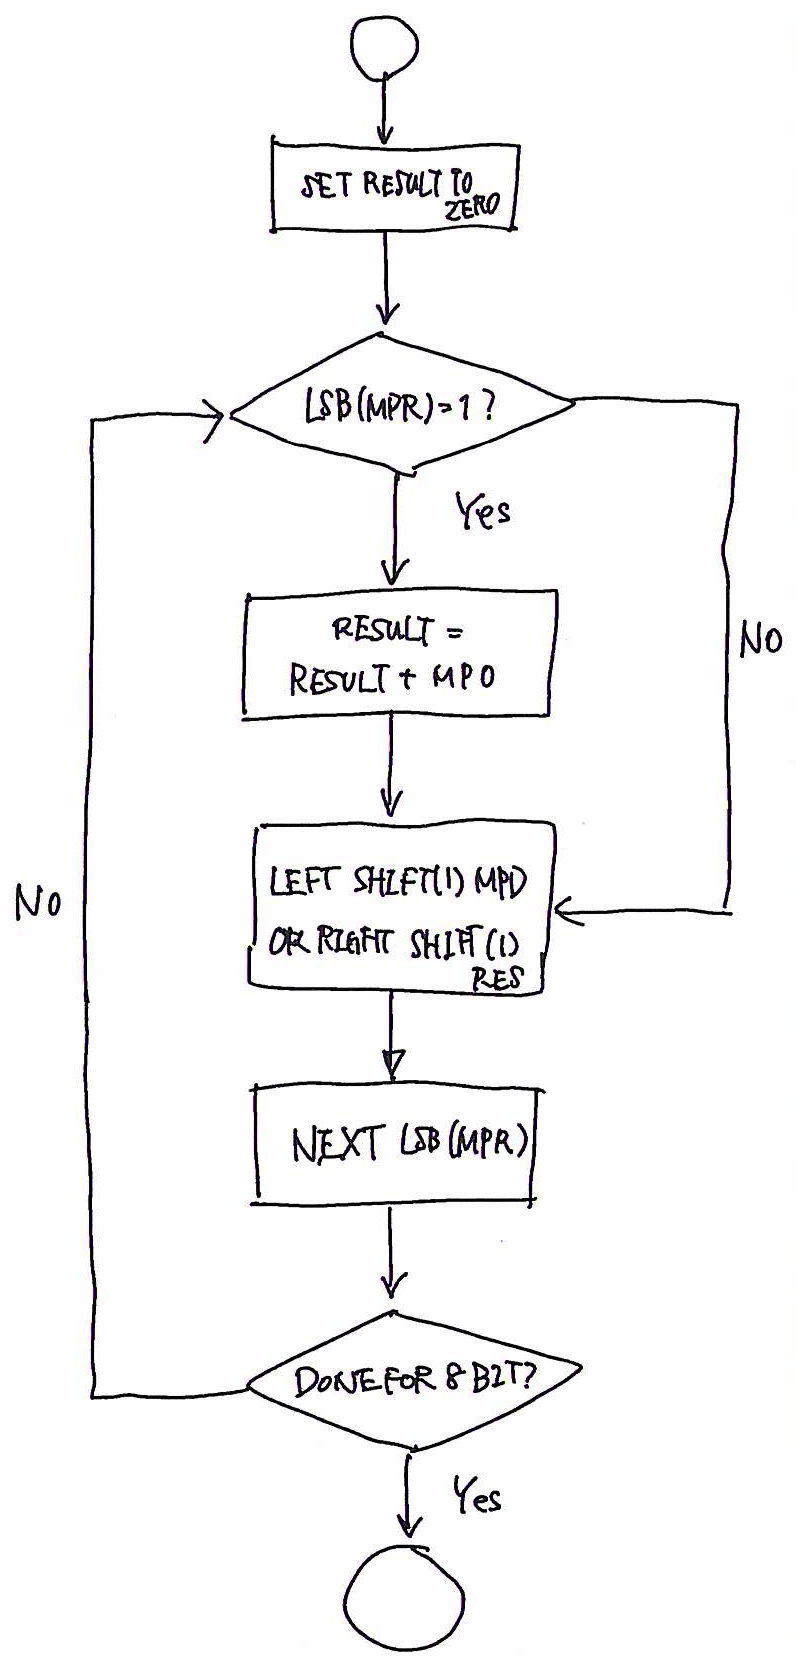 SET RESULT TO
ZERO
LSB(MPR)=1?
Yes
RESULT =
RESULT + MPD
NO
LEFT SHIFT(1) MPD
OR RIGHT SHIFT(1)
RES
NO
NEXT LSB(MPR)
DONE FOR 8 BIT?
Yes